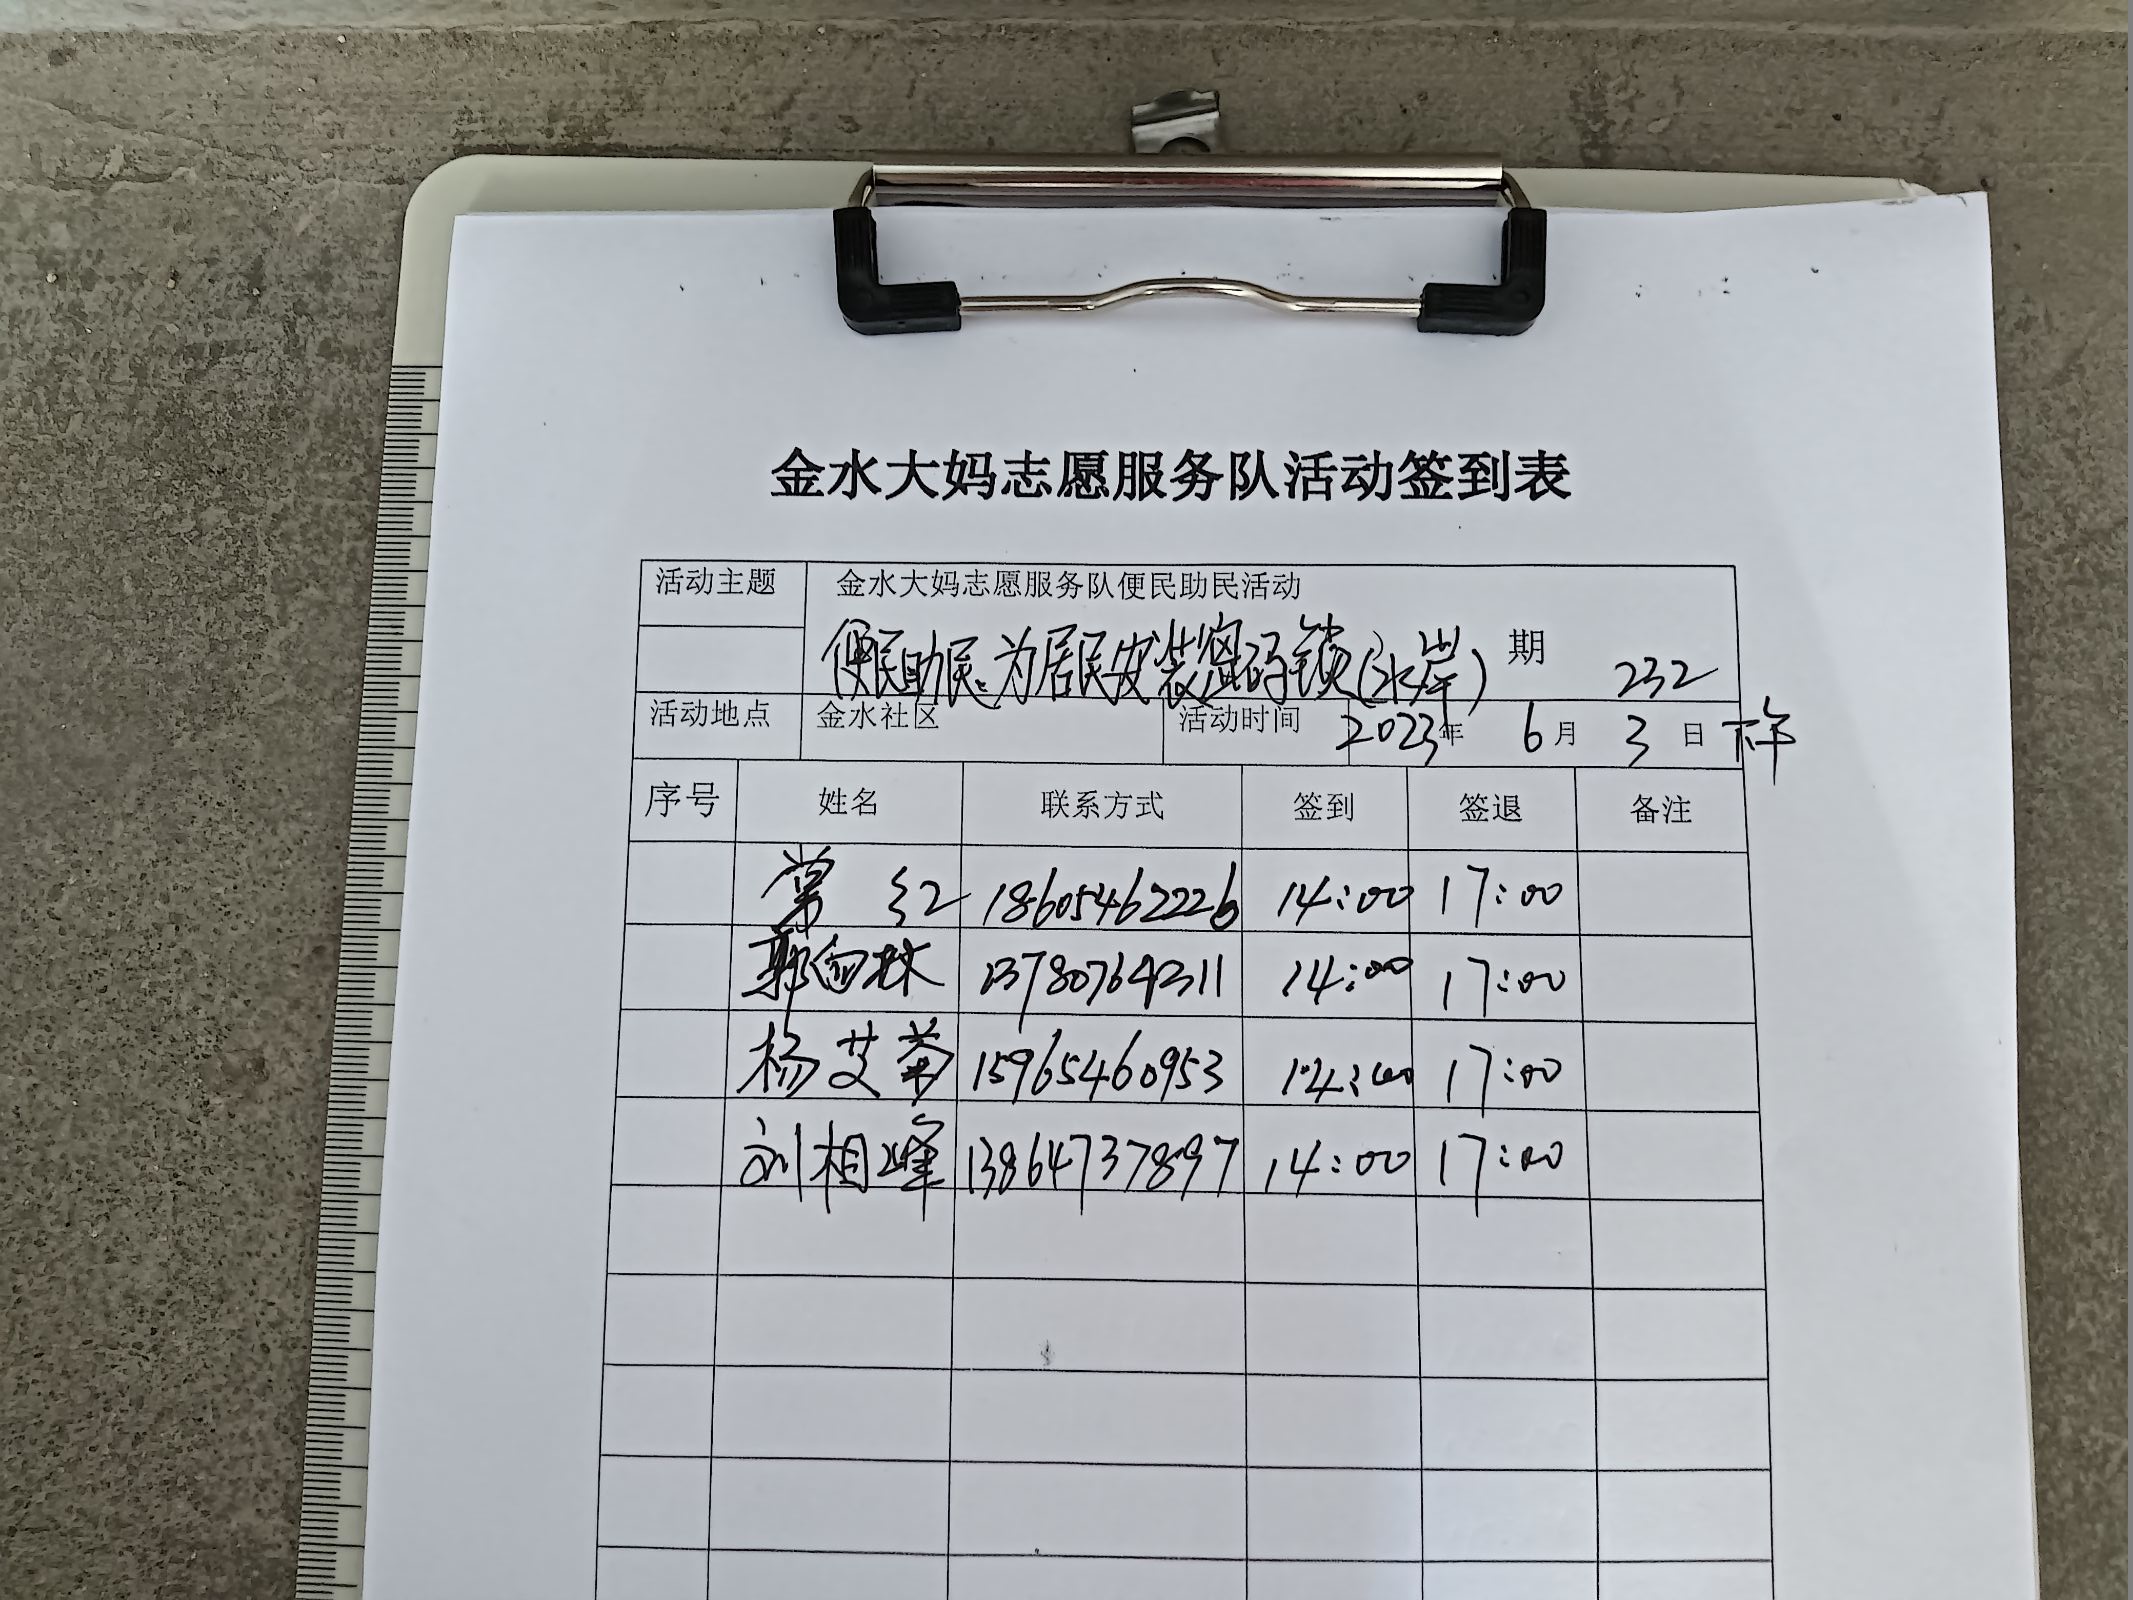 金水大妈志愿服务队活动签到表
活动主题 金水大妈志愿服务队便民助民活动
便民助民、为居民安装密码锁(水岸) 期 232
活动地点 金水社区 活动时间 2023年 6月 3日 下午
序号 姓名 联系方式 签到 签退 备注
常红 18605462226 14:00 17:00
郭向林 13780764311 14:00 17:00
杨艾菊 15965460953 14:00 17:00
刘相峰 13864737897 14:00 17:00